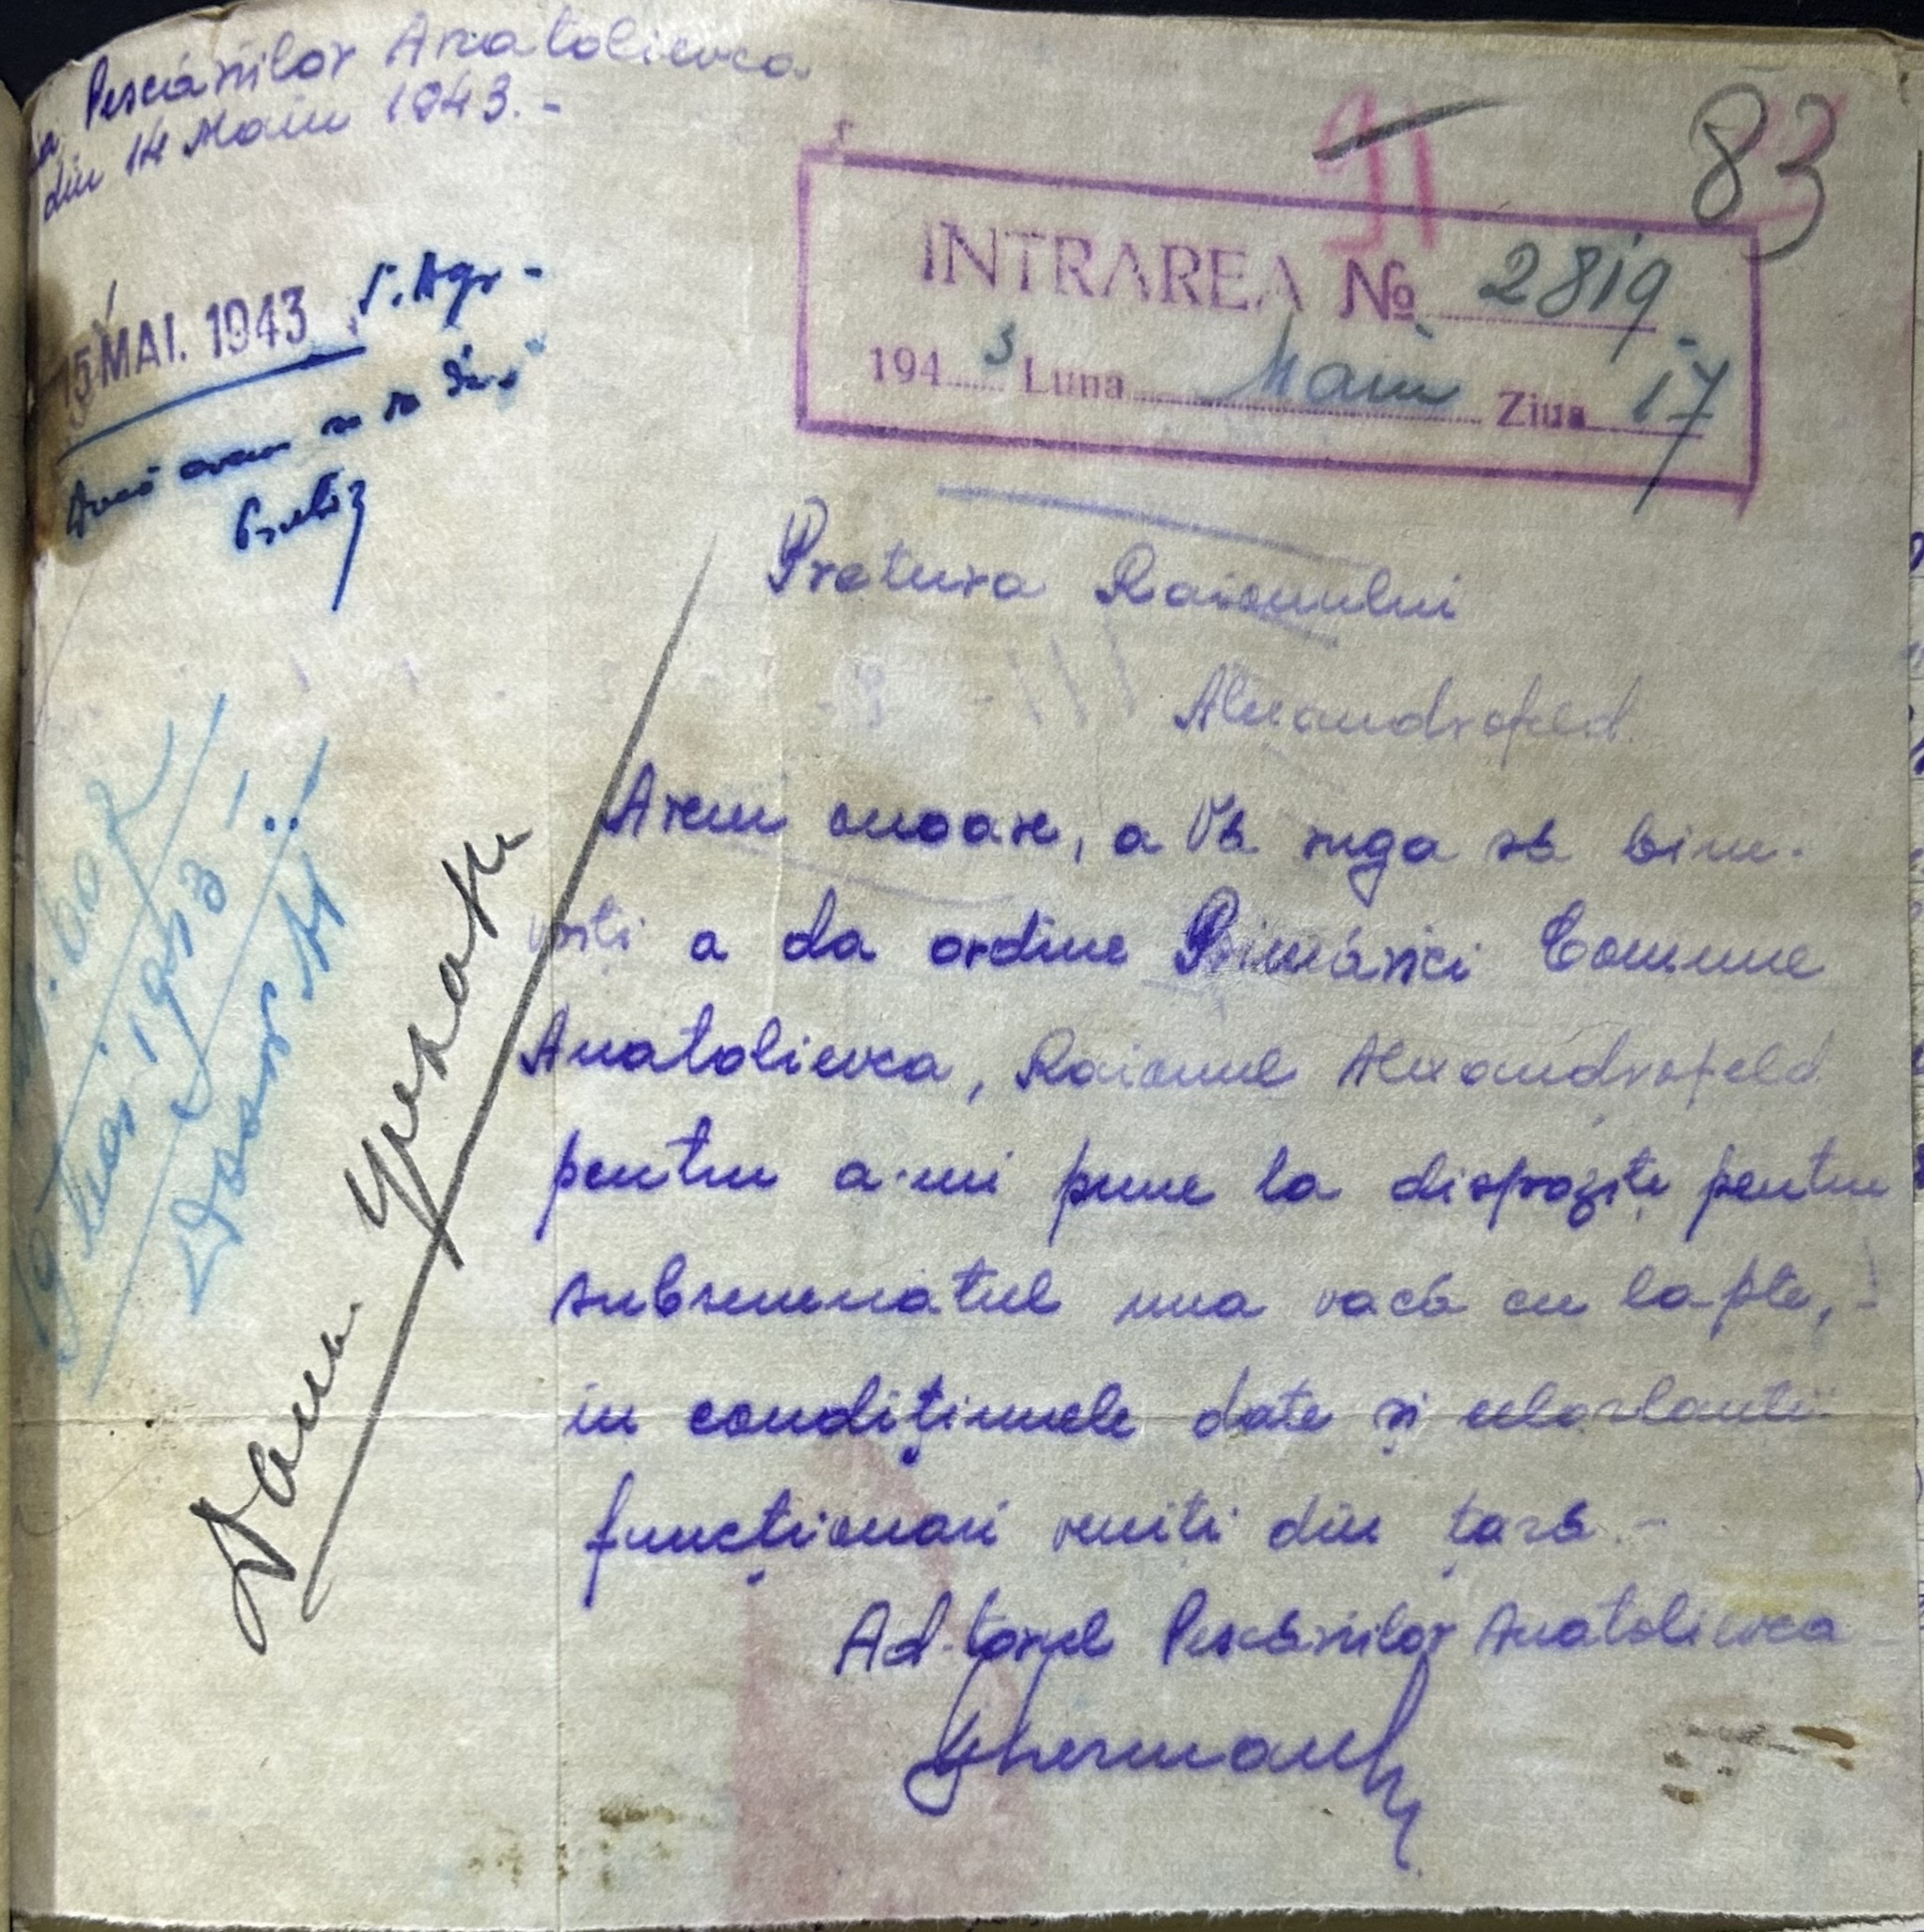 Pescăriilor Anatolievca
din 14 Maiu 1943.-
91
83
INTRAREA № 2819
1943 Luna Maiu Ziua 17
15 MAI. 1943
S. Agr-
Dacă avem să se dea
Pretura Raionului
Alexandrofeld.
Avem onoare, a Vă ruga să bine-
voiți a da ordine Primăriei Comune
Anatolievca, Raionul Alexandrofeld
pentru a-mi pune la dispoziție pentru
subsemnatul una vacă cu lapte,-
in condițiunele date și celorlanti
funcționari veniți din țară.-
Ad-torul Pescăriilor Anatolievca
Gherman
19 Mai 1943